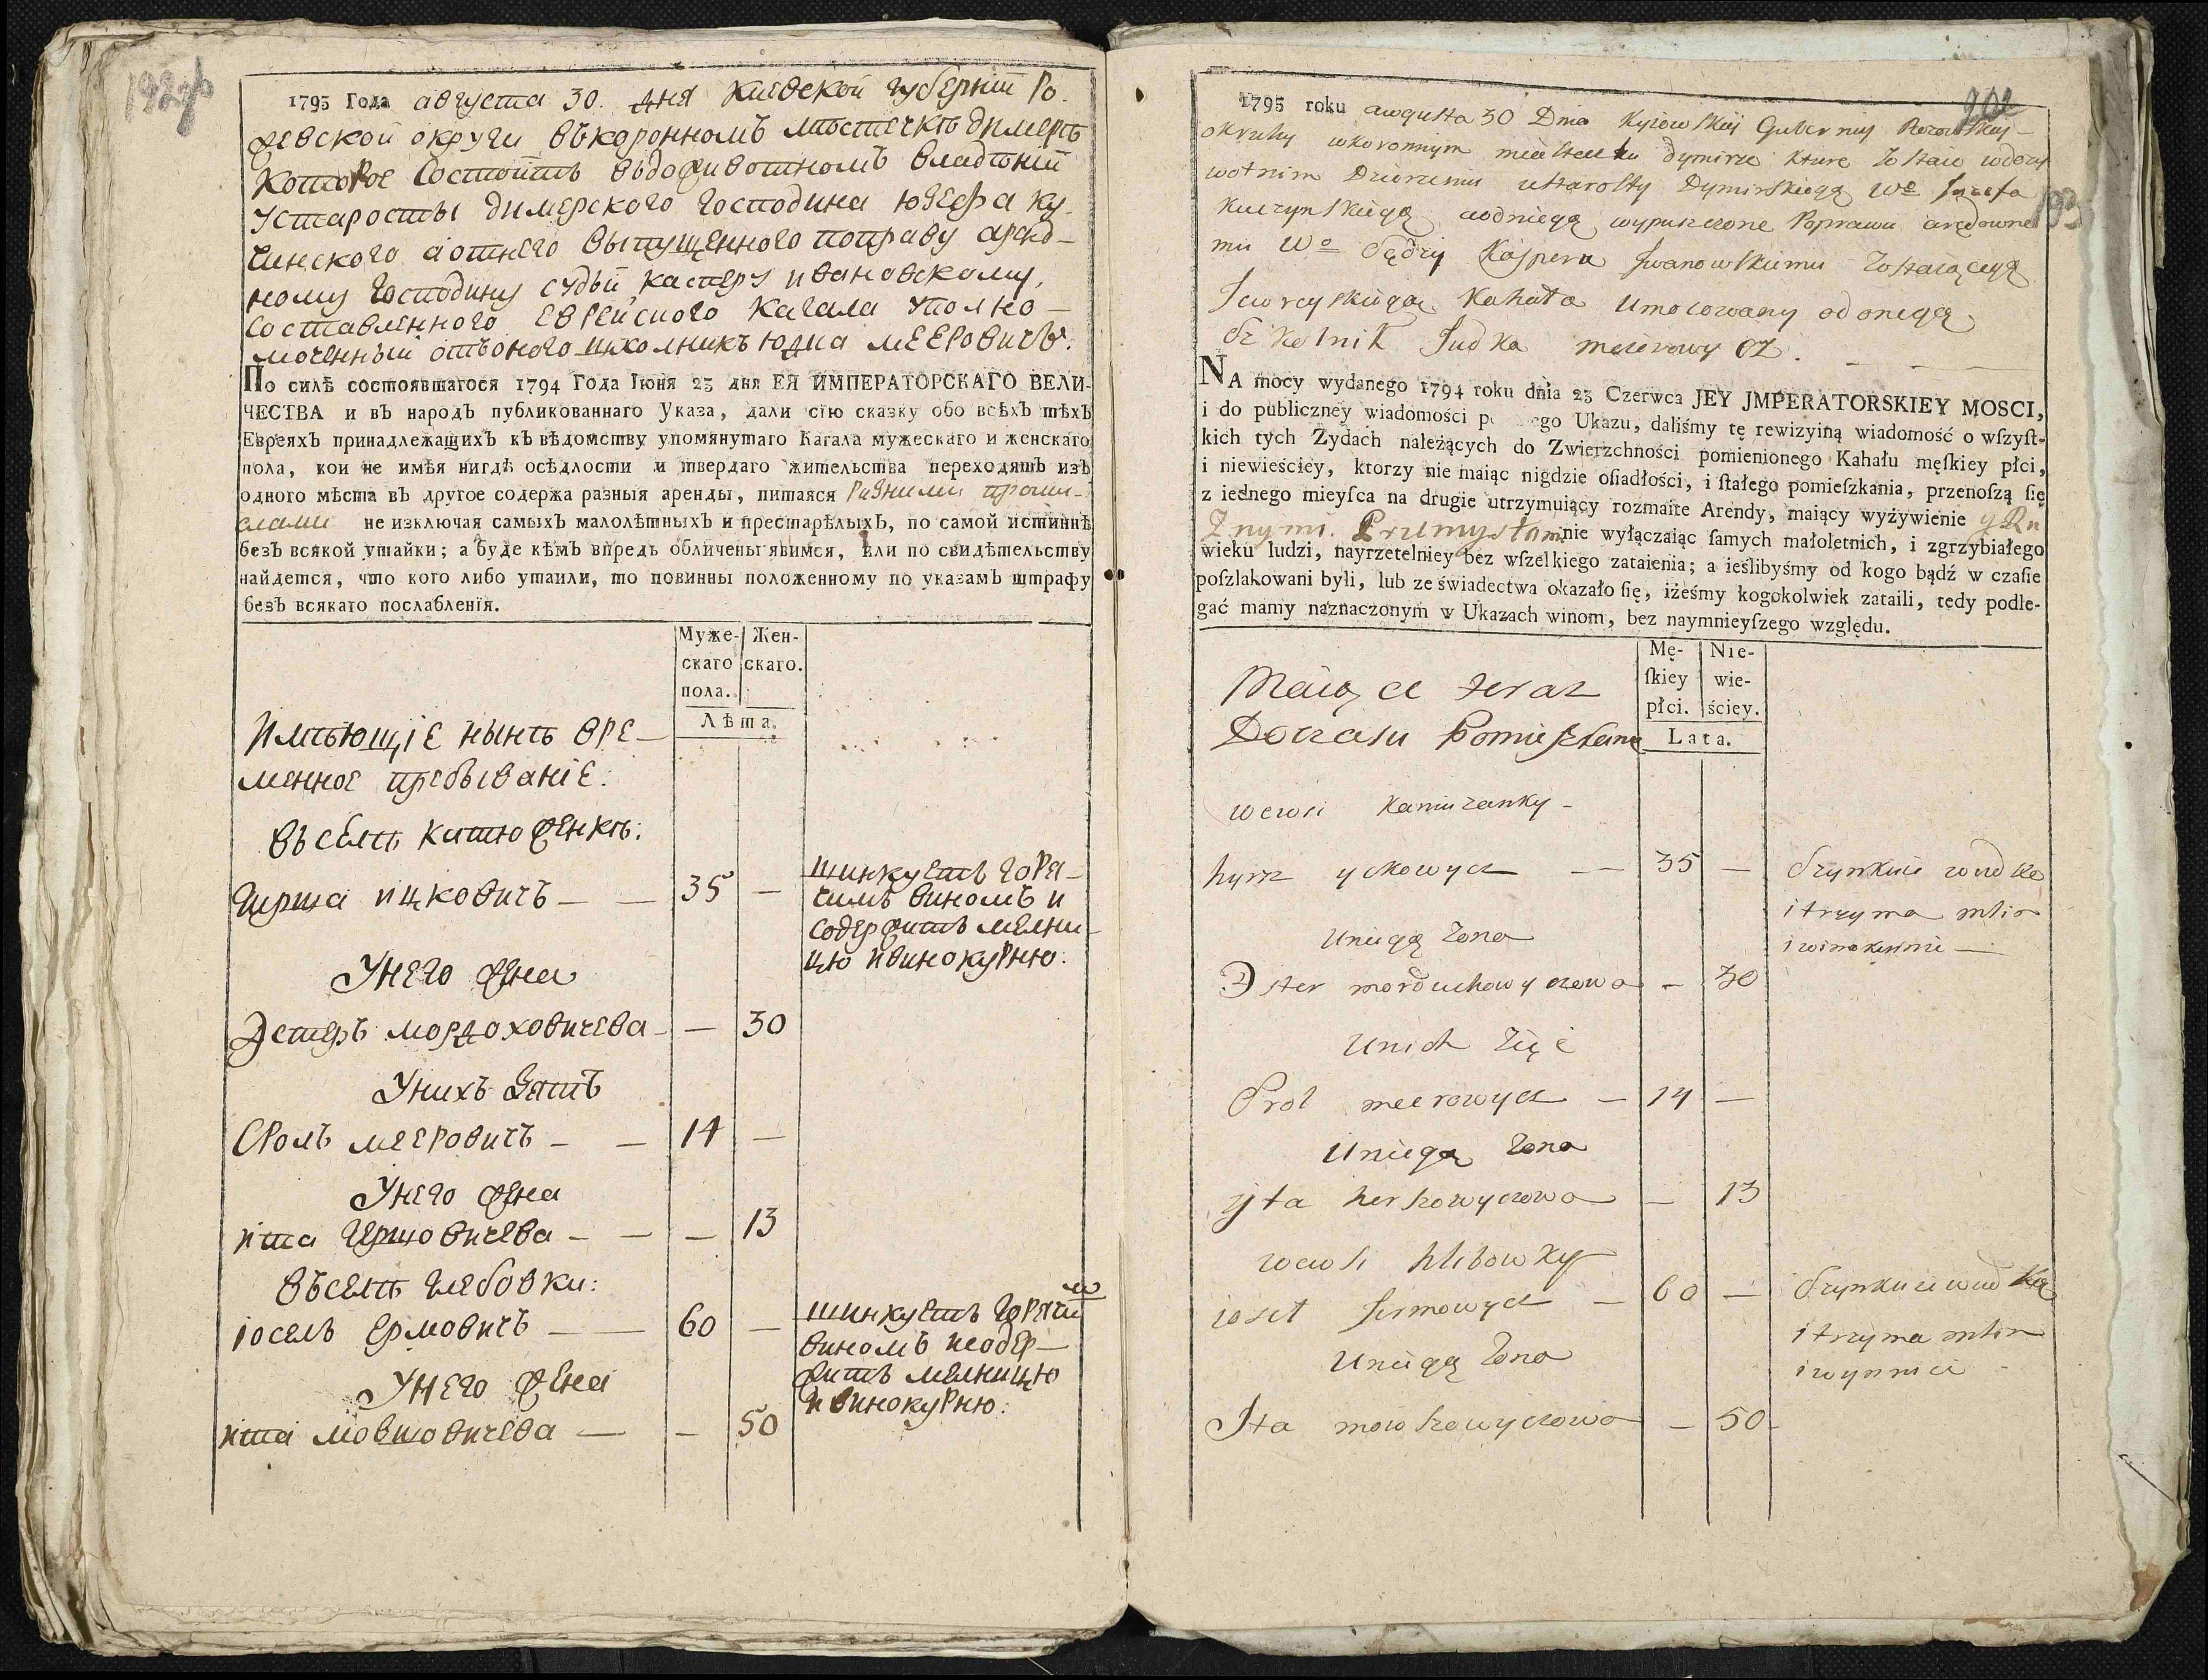 192об
1795 Года августа 30. дня Киевской губернии Ро-
жевской округи въкоронномъ мѣстечкѣ димерѣ
Которое Состоитъ вьдоживотномъ владѣнии
Устаросты димерского господина юзефа ку-
чинского аотнего выпущенного поправу аренд-
ному господину судьи касперу ивановскому,
составленного еврейского кагала уполно-
моченный отъоного школникъ юдка мееровичъ.
По силѣ состоявшагося 1794 Года Іюня 23 дня ЕЯ ИМПЕРАТОРСКАГО ВЕЛИ-
ЧЕСТВА и въ народъ публикованнаго Указа, дали сїю сказку обо всѣхъ тѣхъ
Евреяхъ принадлежащихъ къ вѣдомству упомянутаго Кагала мужескаго и женскаго
пола, кои не имѣя нигдѣ осѣдлости и твердаго жительства переходятъ изъ
одного мѣста въ другое содержа разныя аренды, питаяся разними проми-
слами не изключая самыхъ малолѣтныхъ и престарѣлыхъ, по самой истиннѣ
безъ всякой утайки; а буде кѣмъ впредь обличены явимся, или по свидѣтельству
найдется, что кого либо утаили, то повинны положенному по указамъ штрафу
безъ всякаго послабленїя.
Муже- Жен-
скаго скаго.
пола.
Лѣта.
Имѣющіе нынѣ вре-
менное пребываніе.
Въселѣ катюженкѣ:
Гирша ицковичъ — — 35 — шинкуетъ горя-
чимъ виномъ и
содержитъ мелни-
цю ивинокурню.
Унего жена
Эстеръ мордоховичева — — 30
Унихъ Зять
Сролъ мееровичъ — — 14 —
Унего жена
ита гершовичева — — — 13
Въселѣ глебовки:
іоселъ ермовичъ — — 60 — шинкуетъ горячи
мъ
виномъ исодер-
житъ мелницю
и винокурню.
Унего жена
ита мовшовичева — — 50
202
193
1795 roku awgusta 30 Dnia Kyiowskiy Gubernij
okruhy wkoronnym miasteczku dymirze kture Zostaie wdozy
wotnim Dzierzeniu ustarosty Dymirskiegą Wo Jozefa
Kuczynskiegą aodniegą wypuszczone Poprawu arędowne
mu Wo Sędzij Kasperu Jwanowskiemu Zostaiącegą
Jewreyskiegą Kahała Umocowany od onegą
Szkolnik Judka meierowy cz.
NA mocy wydanego 1794 roku dnia 23 Czerwca JEY JMPERATORSKIEY MOSCI,
i do publiczney wiadomości Ukazu, daliśmy tę rewizyiną wiadomość o wſzyſt-
kich tych Żydach należących do Zwierzchności pomienionego Kahału męſkiey płci,
i niewieściey, ktorzy nie maiąc nigdzie oſiadłości, i ſtałego pomieſzkania, przenoſzą ſię
z iednego mieyſca na drugie utrzymuiący rozmaite Arendy, maiący wyżywienie y Ru
Znymi Przemysłam nie wyłączaiąc ſamych małoletnich, i zgrzybiałego
wieku ludzi, nayrzetelniey bez wſzelkiego zataienia; a ieślibyśmy od kogo bądź w czaſie
poſzlakowani byli, lub ze świadectwa okazało ſię, iżeśmy kogokolwiek zataili, tedy podle-
gać mamy naznaczonym w Ukazach winom, bez naymnieyſzego względu.
Mę- Nie-
ſkiey wie-
płci. ściey.
Lata.
Maiące teraz
Doczasu Pomieszkanie
wewsi
hyrsz yckowycz — — 35 — Szynkuie wudko
i trzyma młin
Uniegą Zona
Ester morduchowyczowa — 30
Unich Zięć
Srol meerowycz — 14 —
Uniegą Zona
yta herszowyczowa — 13
wewsi hlibowky
iosel Jermowycz — 60 — Szynkuie wudką
i trzyma młin
Uniegą Zona
Ita mowszowyczowa — 50